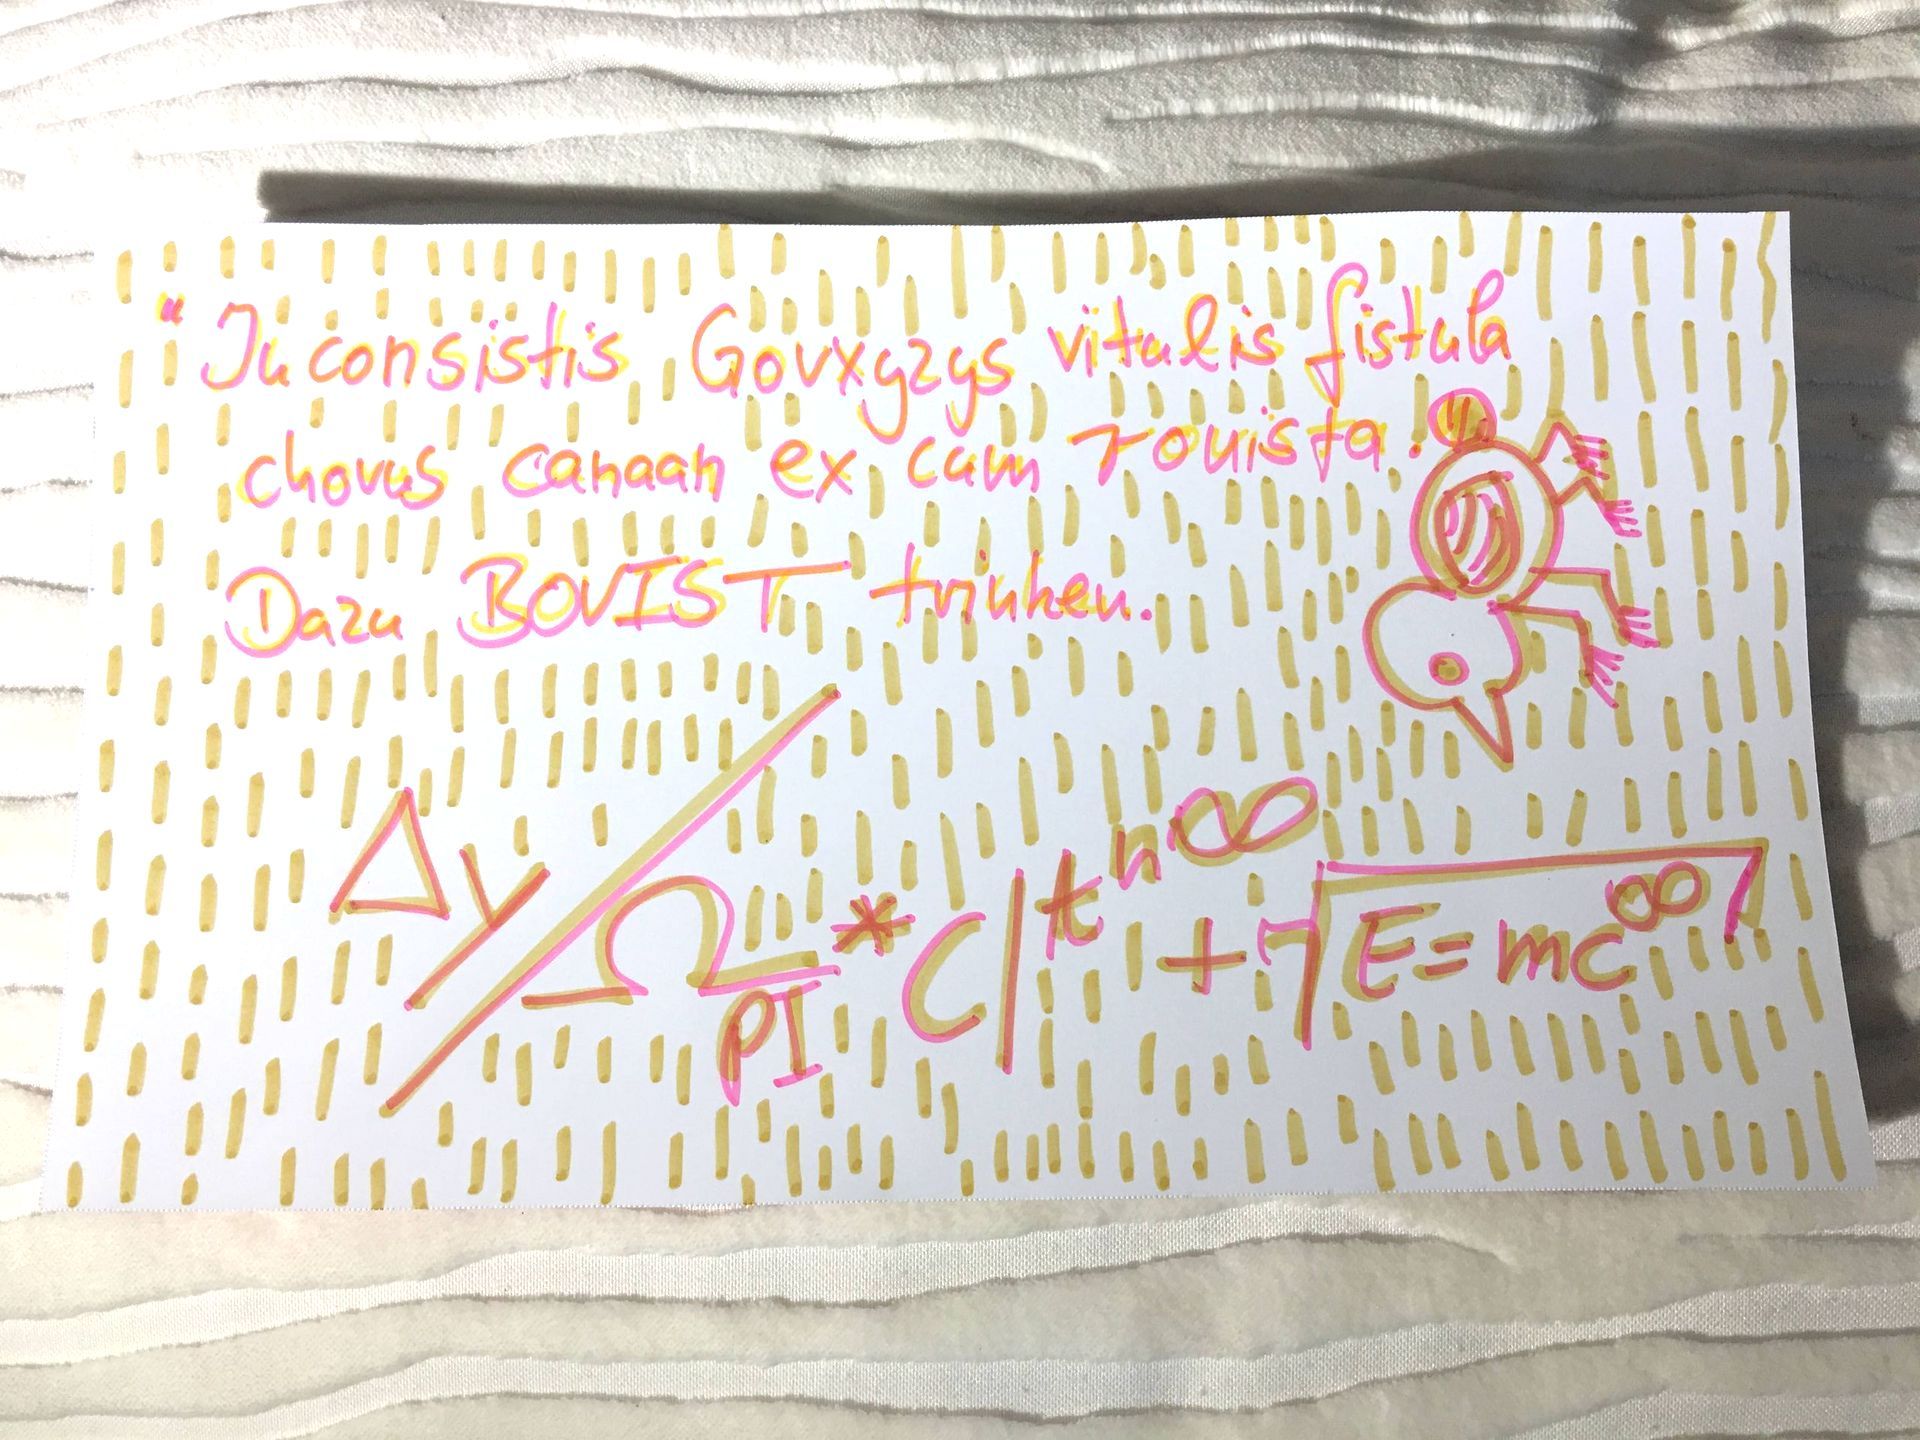 " Inconsistis Govxyzys vitalis fistula
chorus canaan ex cum rouista!
Dazu BOVIST trinken.
Δy/Ω PI * C|t^n∞ + √E=mc^∞